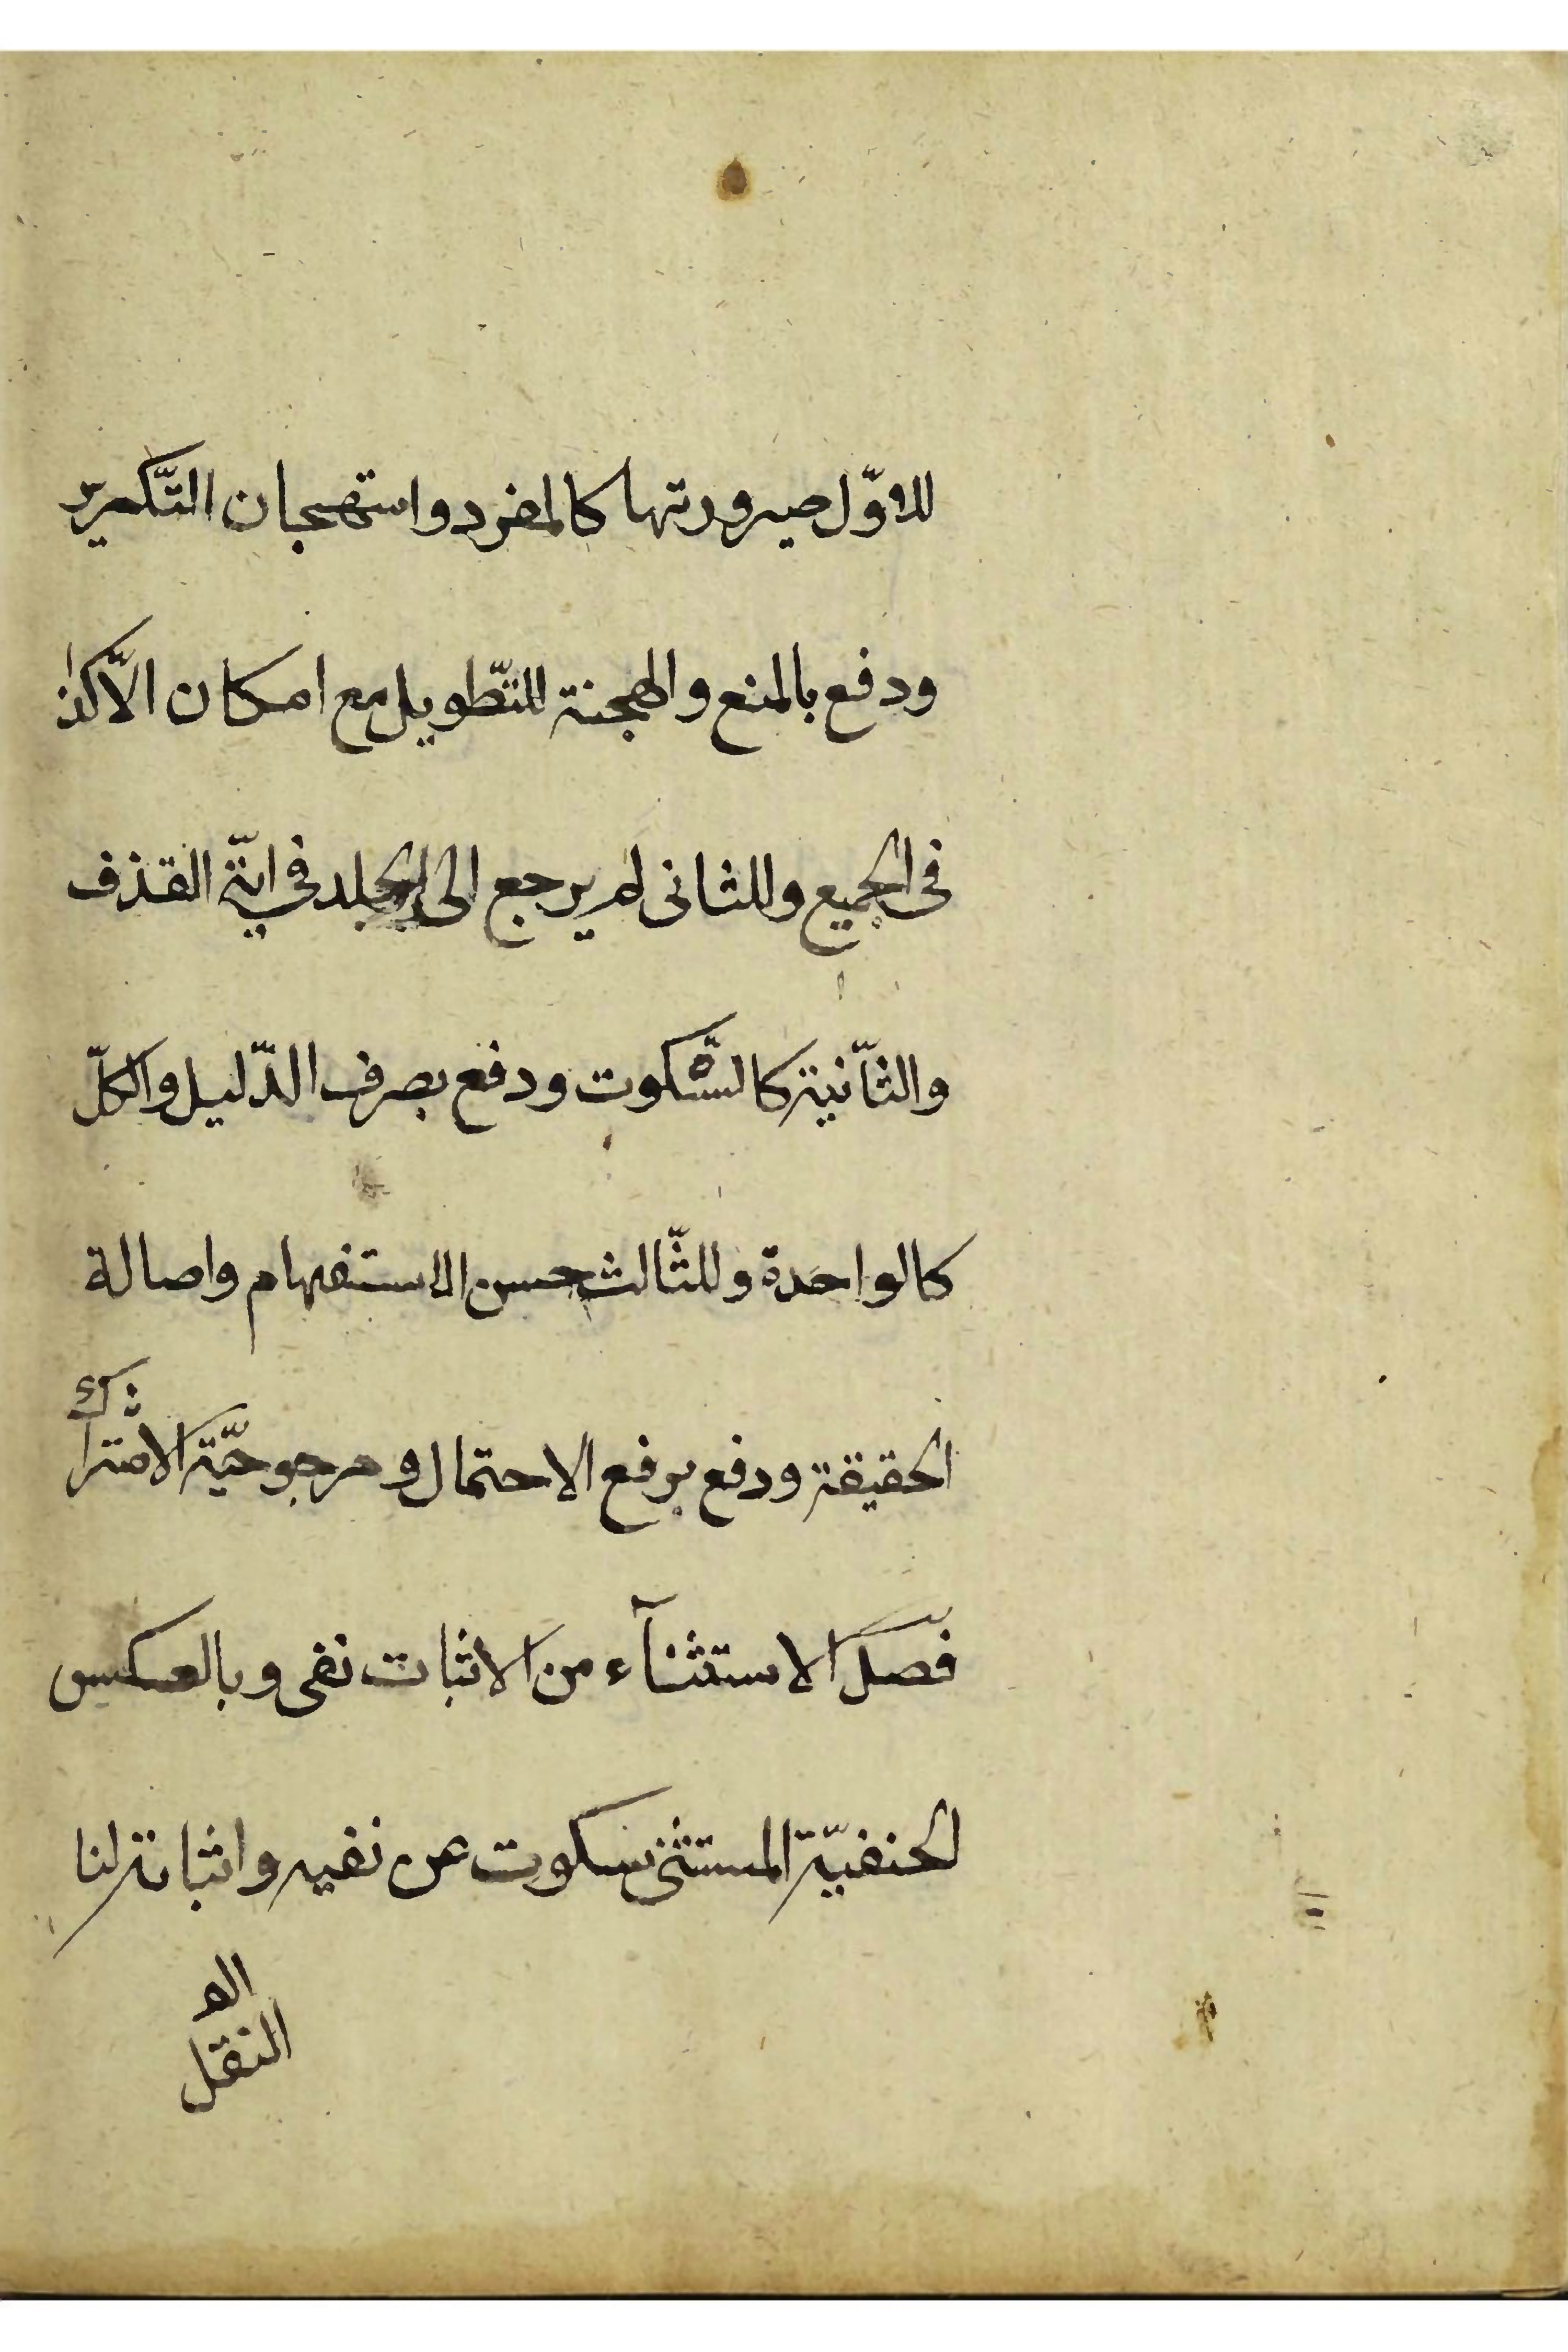 للاوّل صيرورتها كالمفرد واستهجان التّكرير
ودفع بالمنع والهجنة للتّطويل مع امكان الّا كذا
فى الجميع وللثانى لم يرجع الى الجلد فى اية القذف
والثّانية كالسّكوت ودفع بصرف الدّليل والكلّ
كالواحدة وللثّالث حسن الاستفهام واصالة
الحقيقة ودفع برفع الاحتمال ومرجوحيّة الاشتراك
فصل الاستثنآء من الاثبات نفى وبالعكس
الحنفيّة المستثنى سكوت عن نفيه واثباته لنا
النقل